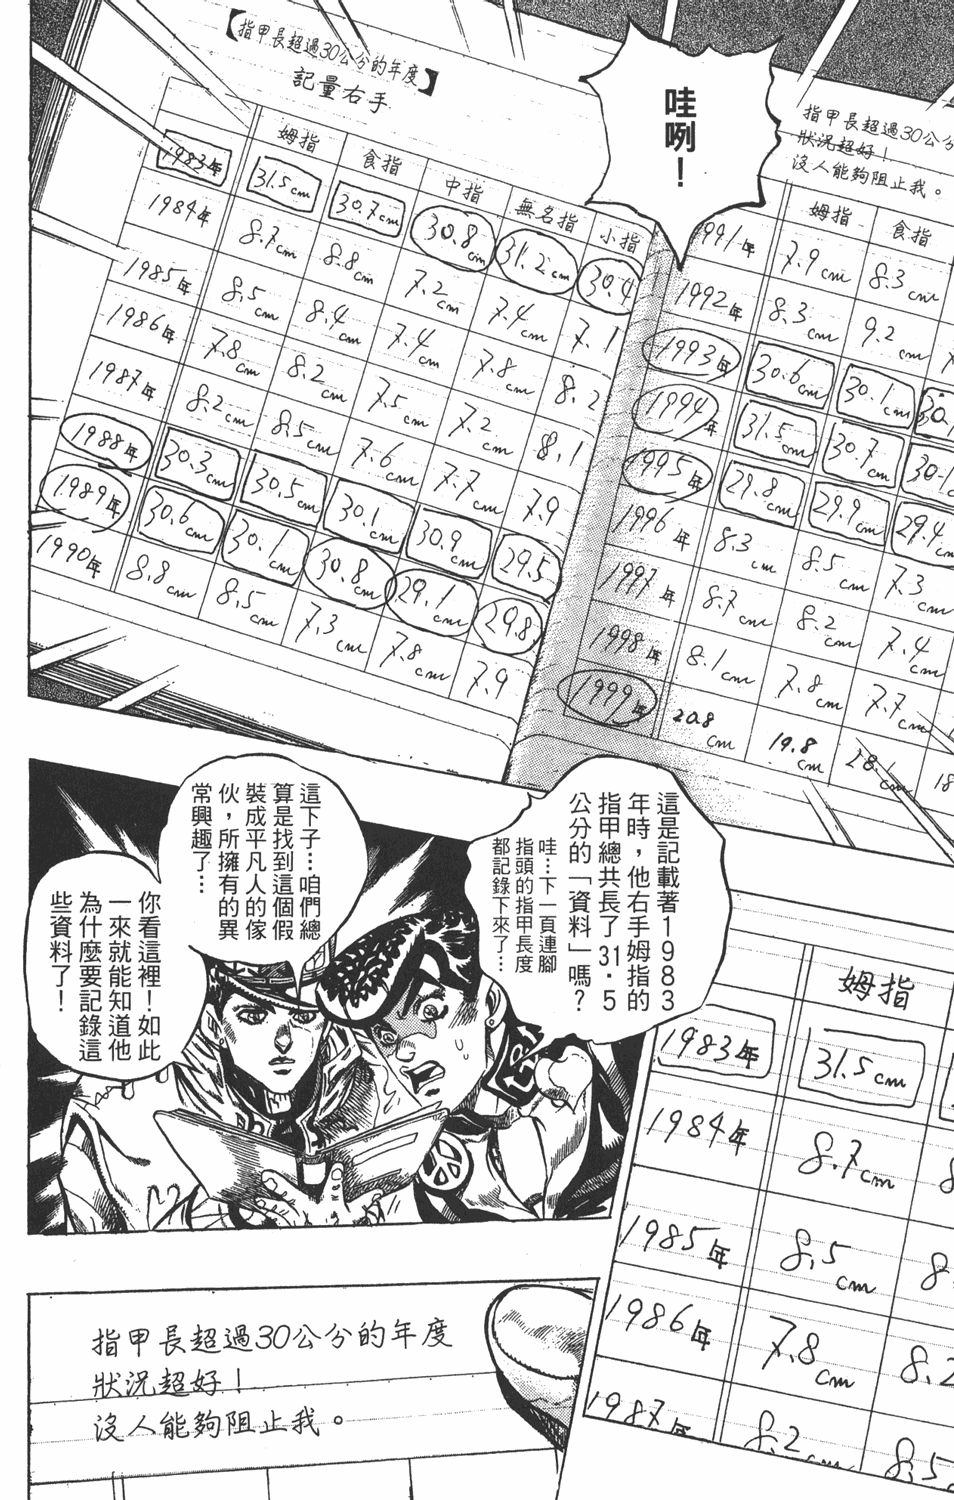 【指甲長超過30公分的年度】
記量右手
姆指 食指 中指 無名指 小指
1983年 31.5cm 30.7cm 30.8cm 31.2cm 30.4
1984年 8.7cm 8.8cm 7.2cm 7.4cm 7.1
1985年 8.5cm 8.4cm 7.4cm 7.8cm 8.2
1986年 7.8cm 8.2cm 7.5cm 7.2cm 8.1
1987年 8.2cm 8.5cm 7.6cm 7.7cm 7.9
1988年 30.3cm 30.5cm 30.1cm 30.9cm 29.5
1989年 30.6cm 30.1cm 30.8cm 29.1cm 29.8
1990年 8.8cm 8.5cm 7.3cm 7.8cm 7.9
哇咧！
指甲長超過30公分
狀況超好！
沒人能夠阻止我。
姆指 食指
1991年 7.9cm 8.3cm
1992年 8.3cm 9.2cm
1993年 30.6cm 30.1cm 30.
1994年 31.5cm 30.7cm 30.1
1995年 29.8cm 29.9cm 29.4cm
1996年 8.3cm 8.5cm 7.3cm
1997年 8.7cm 8.2cm 7.4cm
1998年 8.1cm 7.8cm 7.7cm
1999年 20.8cm 19.8cm 18
這是記載著1983
年時，他右手姆指的
指甲總共長了31.5
公分的「資料」嗎？
哇…下一頁連腳
指頭的指甲長度
都記錄下來了…
這下子…咱們總
算是找到這個假
裝成平凡人的傢
伙，所擁有的異
常興趣了…
你看這裡！如此
一來就能知道他
為什麼要記錄這
些資料了！
姆指
1983年 31.5cm
1984年 8.7cm
1985年 8.5cm 8
1986年 7.8cm 8.2
1987年 8.2cm 8.5
指甲長超過30公分的年度
狀況超好！
沒人能夠阻止我。